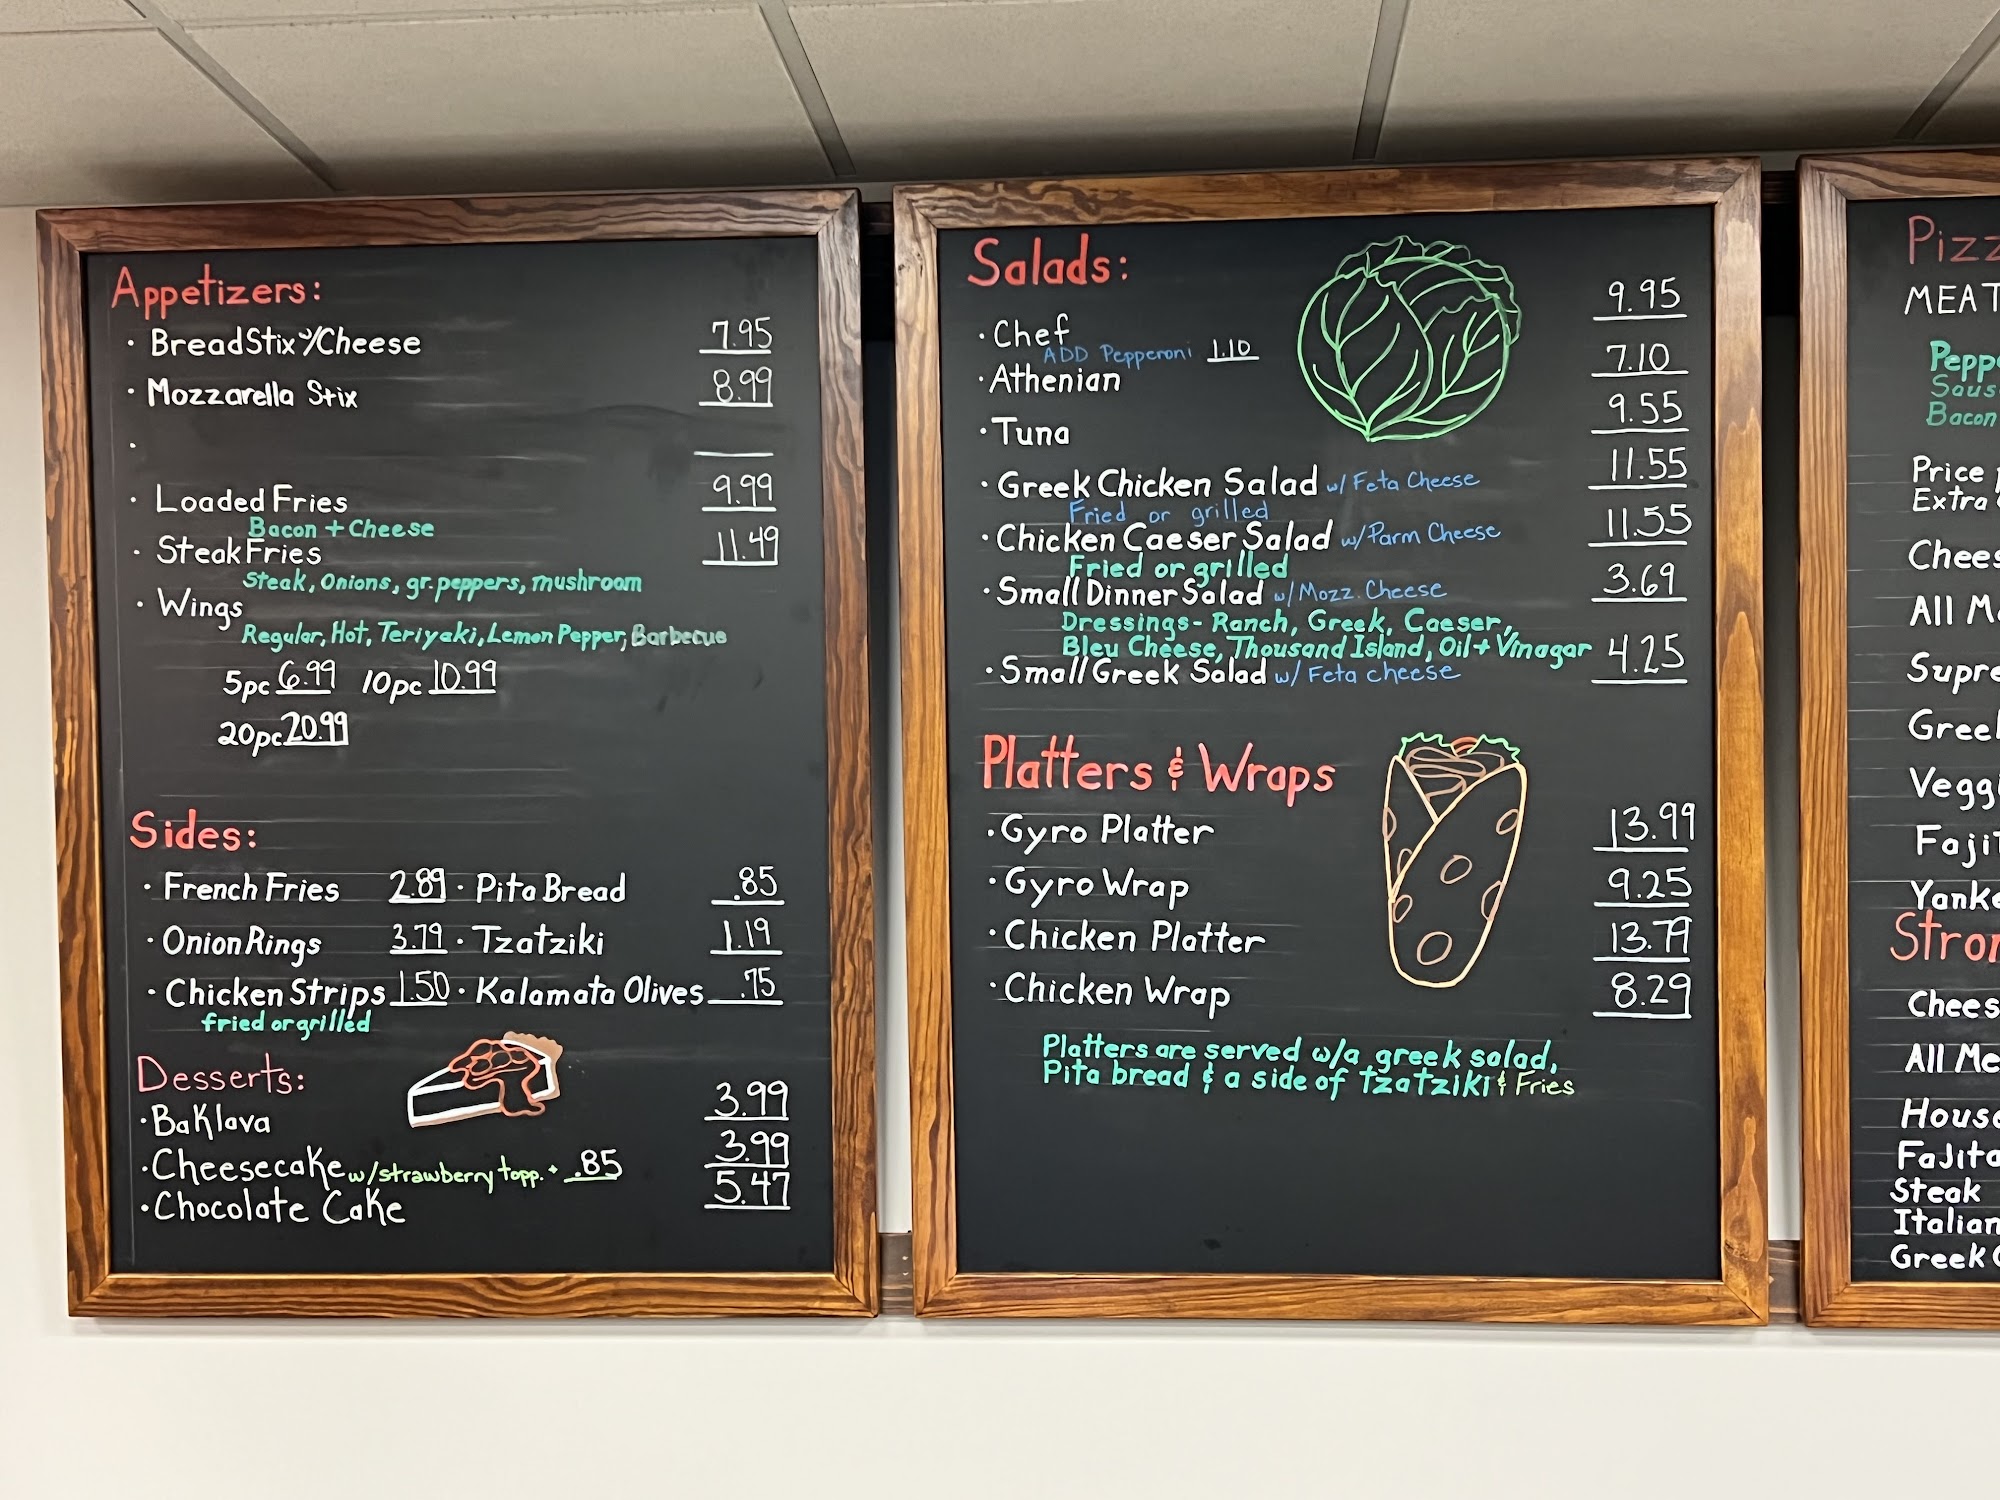 Appetizers:
· BreadStix w/Cheese 7.95
· Mozzarella Stix 8.99
·
· Loaded Fries 9.99
Bacon + Cheese
· Steak Fries 11.49
Steak, Onions, gr. peppers, mushroom
· Wings
Regular, Hot, Teriyaki, Lemon Pepper, Barbecue
5pc 6.99 10pc 10.99
20pc 20.99
Sides:
· French Fries 2.89 · Pita Bread .85
· Onion Rings 3.79 · Tzatziki 1.19
· Chicken Strips 1.50 · Kalamata Olives .75
fried or grilled
Desserts:
· Baklava 3.99
· Cheesecake w/strawberry topp. + .85 3.99
· Chocolate Cake 5.47
Salads:
· Chef 9.95
ADD Pepperoni 1.10
· Athenian 7.10
· Tuna 9.55
· Greek Chicken Salad w/ Feta Cheese 11.55
Fried or grilled
· Chicken Caeser Salad w/Parm Cheese 11.55
Fried or grilled
· Small Dinner Salad w/Mozz. Cheese 3.69
Dressings- Ranch, Greek, Caeser,
Bleu Cheese, Thousand Island, Oil + Vinagar
· Small Greek Salad w/ Feta cheese 4.25
Platters & Wraps
· Gyro Platter 13.99
· Gyro Wrap 9.25
· Chicken Platter 13.79
· Chicken Wrap 8.29
Platters are served w/a greek salad,
Pita bread & a side of tzatziki & Fries
MEAT
Price
Extra
All
Steak
Italian
Greek